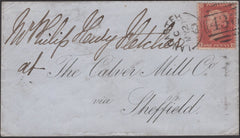 Mr Philip Hardy Fletcher
at The Calver Mill Co.
via
Sheffield.